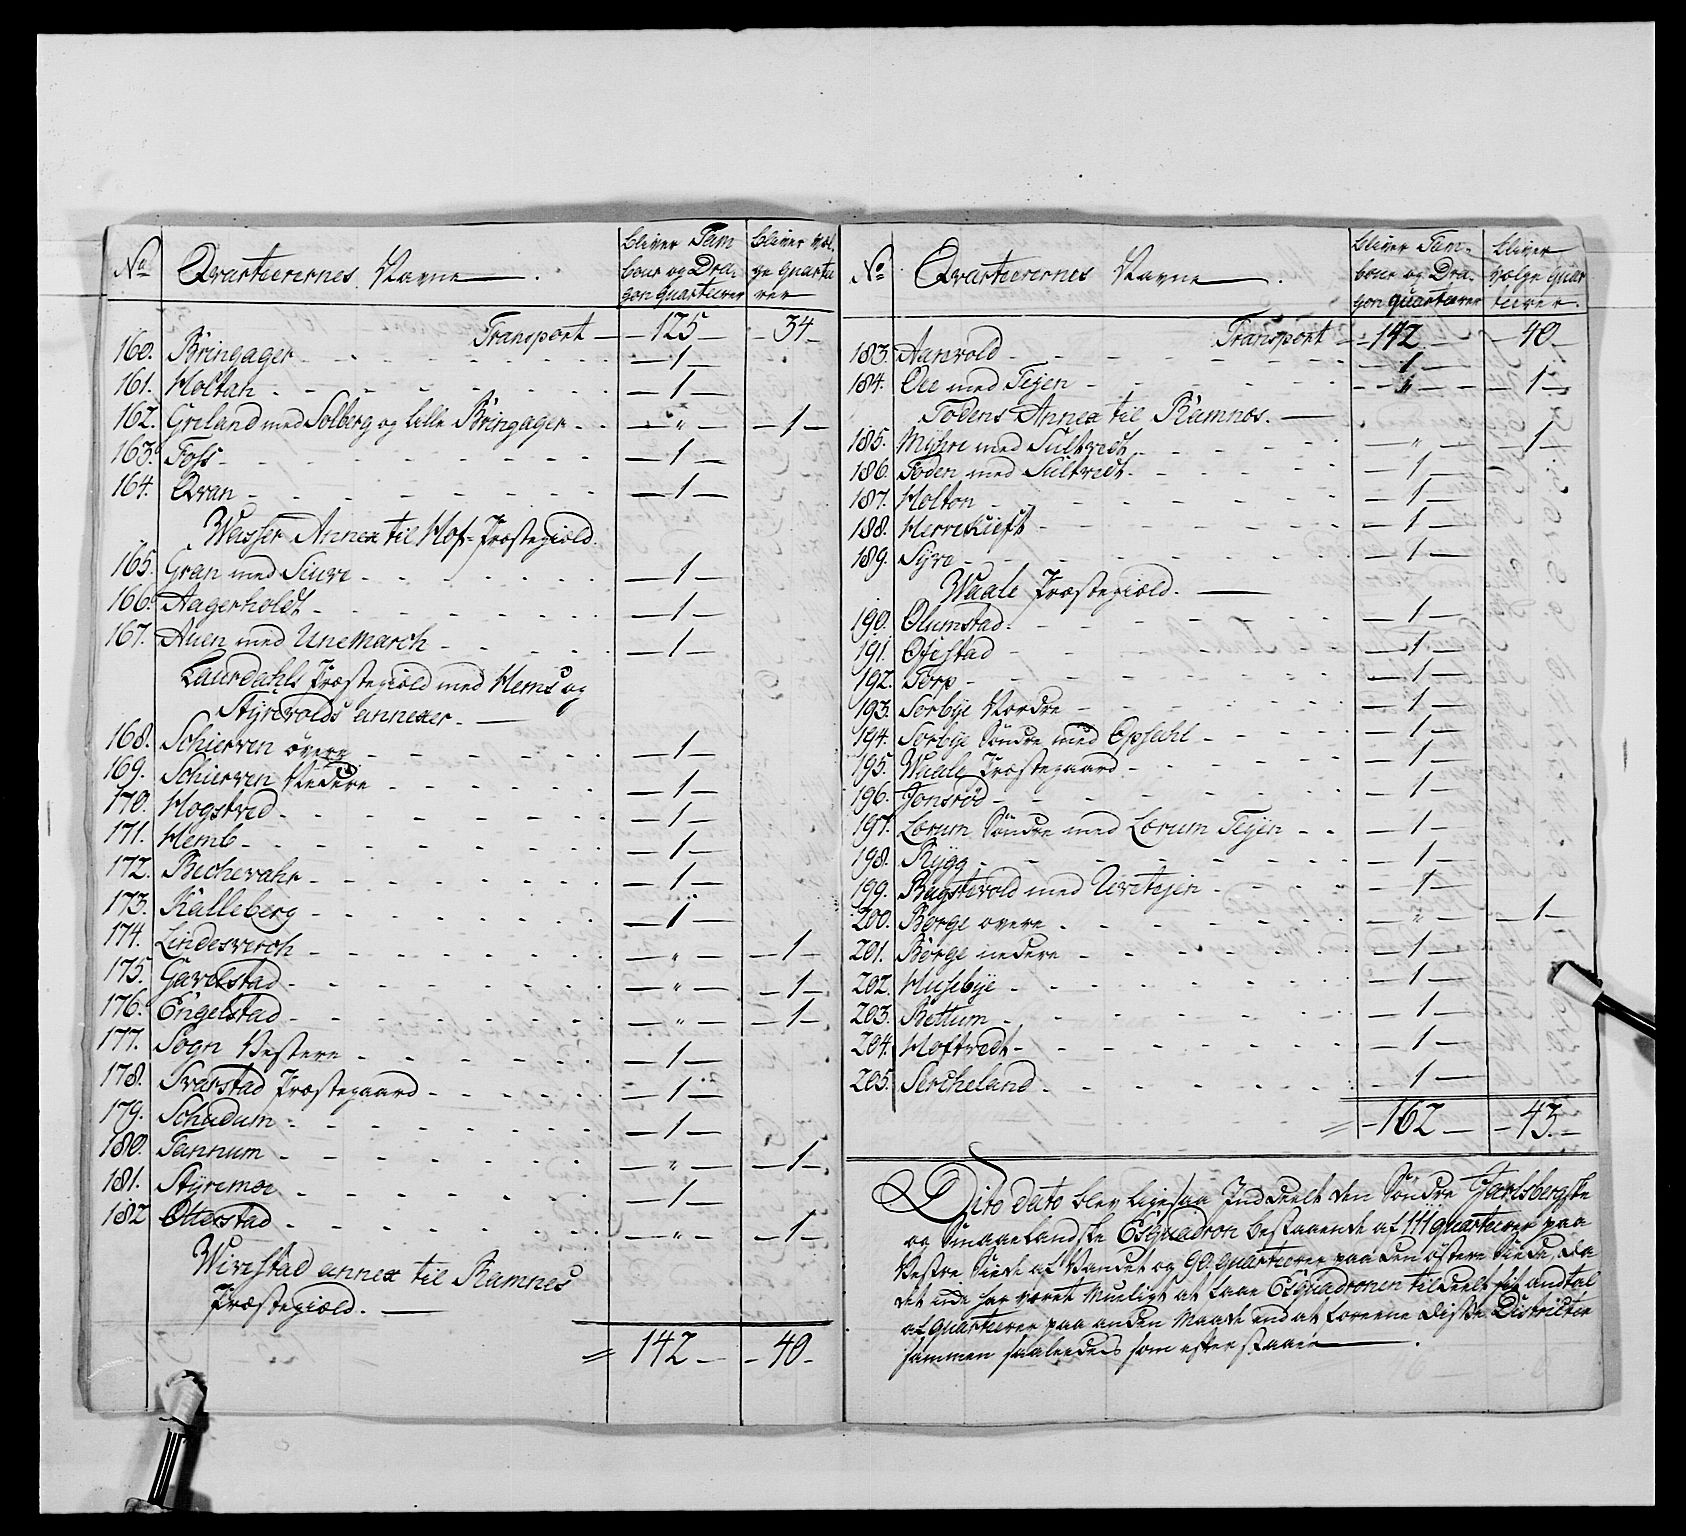 No. Qvarteerernes Navne. bliver Tam
bour og Dra-
gon quarteerer bliver Væl-
ge quartee
rer
Transport — 125 — 34 —
160. Bringager — 1 —
161. Holtan — 1 —
162. Greland med Solberg og Lille Bringager — „ — 1 —
163. Foss — 1 —
164. Qvan — 1 —
Wasser Annex til Hof-Præstegield.
165. Gran med Siuve — 1 —
166. Aagerholdt — 1 —
167. Auen med Unemarch — 1 —
Laurdahls Præstegield med Hems og
Styrvolds annexer. —
168. Schierven övere — 1 —
169. Schierven Nedere — 1 —
170. Hogstved — 1 —
171. Hemb — 1 —
172. Bechevahr — 1 —
173. Kalleberg — 1 —
174. Lindesverch — „ — 1 —
175. Gavelstad — „ — 1 —
176. Engelstad — „ — 1 —
177. Sogn Vestere — 1 —
178. Svarstad Præstegaard — 1 —
179. Schudum — 1 —
180. Tannum — „ — 1 —
181. Styrmoe — 1 —
182 Otterstad — „ — 1 —
Wivestad annex til Ramnes
Præstegield. —
= 142 — 40 —
No. Qvarteerernes Navne. bliver Tam-
bour og Dra-
gon quarteerer bliver
Vælge quar
teerer.
Transport — 142 — 40 —
183. Aanvold — 1 —
184. Oee med Teyen — „ — 1 —
Fodens Annex til Ramnæs. —
185. Myhre med Sultvedt — „ — 1 —
186. Foden med Sultvedt — 1 —
187. Holton — 1 —
188. Herrekleft — 1 —
189. Syre — 1 —
Waale Præstegield. —
190. Olumstad — 1 —
191. Ofestad — 1 —
192. Torp — 1 —
193. Sorbye Nordre — 1 —
194. Sorbye Söndre med Opsahl — 1 —
195. Waale Præstegaard — 1 —
196. Jonsröd — 1 —
197. Lorum Söndre med Lorum Teyen — 1 —
198. Rygg — 1 —
199. Bagstevold med Uvetejen — 1 —
200. Borge overe — „ — 1 —
201. Borge nedere — 1 —
202. Husebye — 1 —
203. Bettum — 1 —
204. Hoftvedt — 1 —
205. Sercheland — 1 —
= 162 — 43 —
Dito dato blev ligesaa Inddeelt den Söndre Jarlsbergske
og Smaaelandske Esquadron bestaaende af 111 quarteerer paa
Vestre Siide af Vandet og 90 quarteerer paa den östere Siide, da
det ide har været mueligt at faae Esquadronen tildeelt sit andtal
af quarteerer paa anden maade end at foreene disse Districter
sammen saaleedes som efterstaaer.